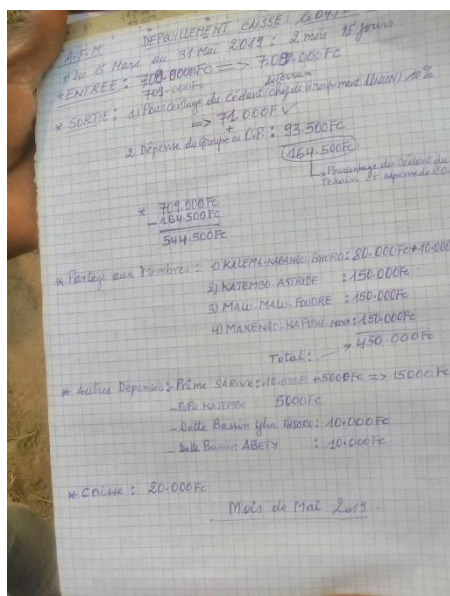 A.F.M : DÉPOUILLEMENT CAISSE : le 04/
* Du 15 Mars au 31 Mai 2019 : 2 mois 15 jours
* ENTRÉE : 709.000FC => 709.000FC
709.000FC
* SORTIE : 1) Pourcentage du Cédant (chef de Groupement) 10%
=> 71.000F
+
2 Dépense du groupe ou C.P. : 93.500FC
164.500FC
↳ Pourcentage du Cédant du
Terrain et dépense de CO
* 709.000FC
- 164.500FC
544.500FC
* Partage aux Membres : 1) KALEMA-KABANGO THORO : 80.000FC+10.000
2) KATEMBO ASTRIDE : 150.000FC
3) MALU-MALU FOUDRE : 150.000FC
4) MAKENGO KAPITU : 150.000FC
Total : → 450.000FC
* Autres Dépenses : - Prime : 10.000F +5000FC => 15000FC
- PaPa KATEMBO 5000FC
- Dette Bassin : 10.000FC
- Dette Bassin ABETY : 10.000FC
* Caisse : 20.000FC
Mois de Mai 2019.